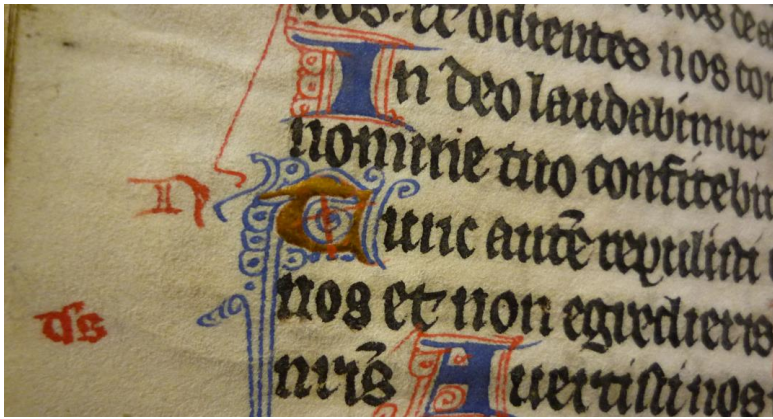 nos. et odientes nos con
In deo laudabimur
nomine tuo confitebi
Tunc autē repulisti
nos et non egredieris
ds̄
nr̄is Auertisti nos